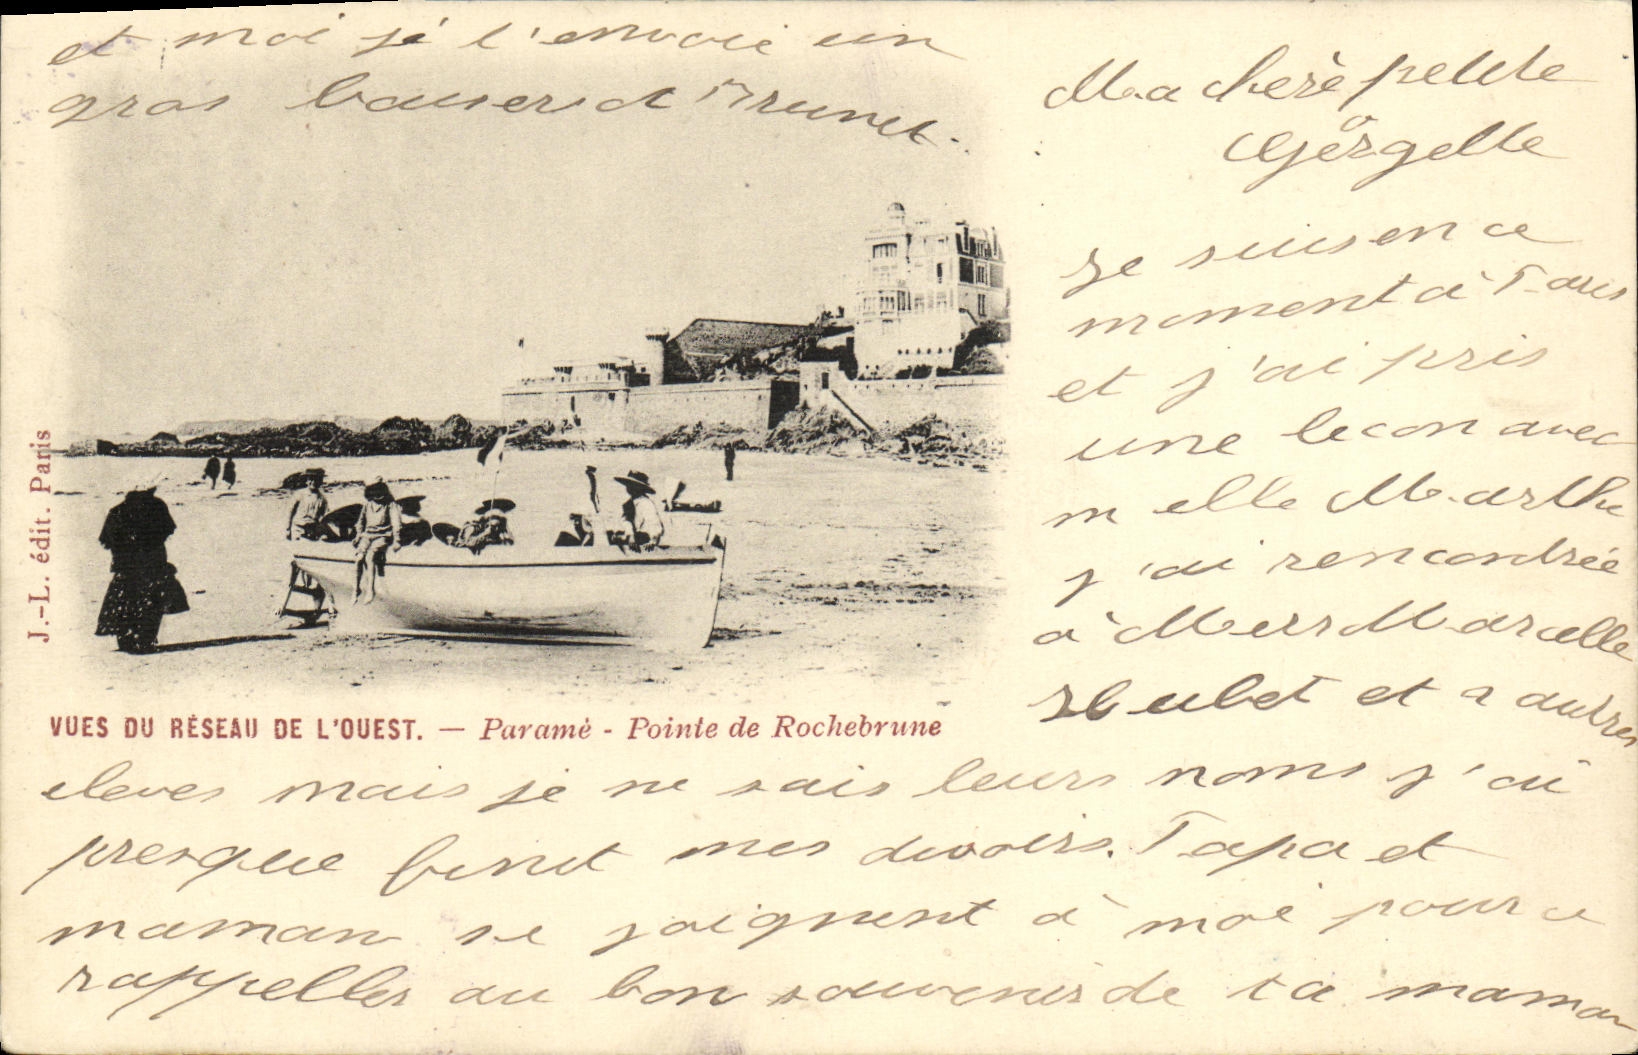 Ma cherè petite
Gorgette
Je suis en ce
moment à Paris
et j'ai pris
une lecon avec
melle Marthe
j'ai rencontrée
à Mers Marcelle
et 2 autres
eleves mais je ne sais leurs noms j'ai
presque finit mes devoirs. Papa et
maman se joignent à moi pour ce
rappeller au bon souvenir de ta maman
et moi je t'envoie un
gros baiser
VUES DU RÉSEAU DE L'OUEST. — Paramé - Pointe de Rochebrune
J.-L. édit. Paris